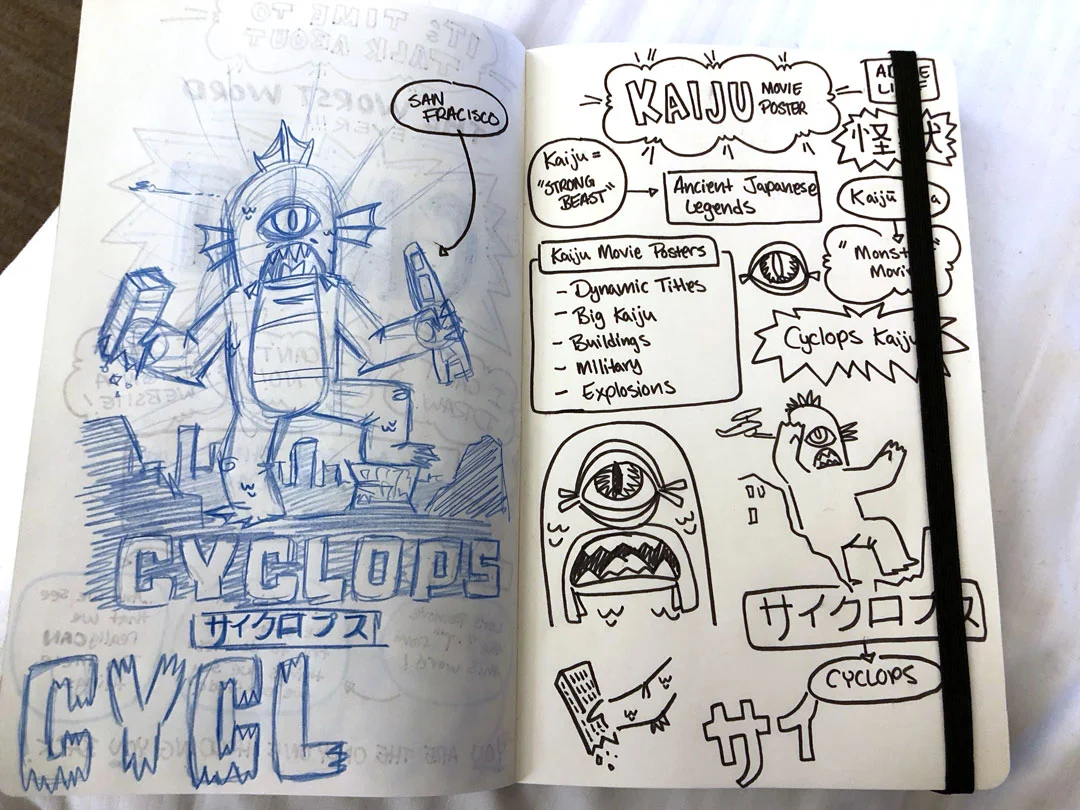 SAN
FRACISCO
CYCLOPS
サイクロプス
CYCL
KAIJU
MOVIE
POSTER
Kaiju =
"STRONG
BEAST"
Ancient Japanese
Legends
怪
Kaijū
"Monst
Movi
Kaiju Movie Posters
- Dynamic Titles
- Big Kaiju
- Buildings
- MIlitary
- Explosions
Cyclops Kaiju
サイクロプス
CYCLOPS
サイ